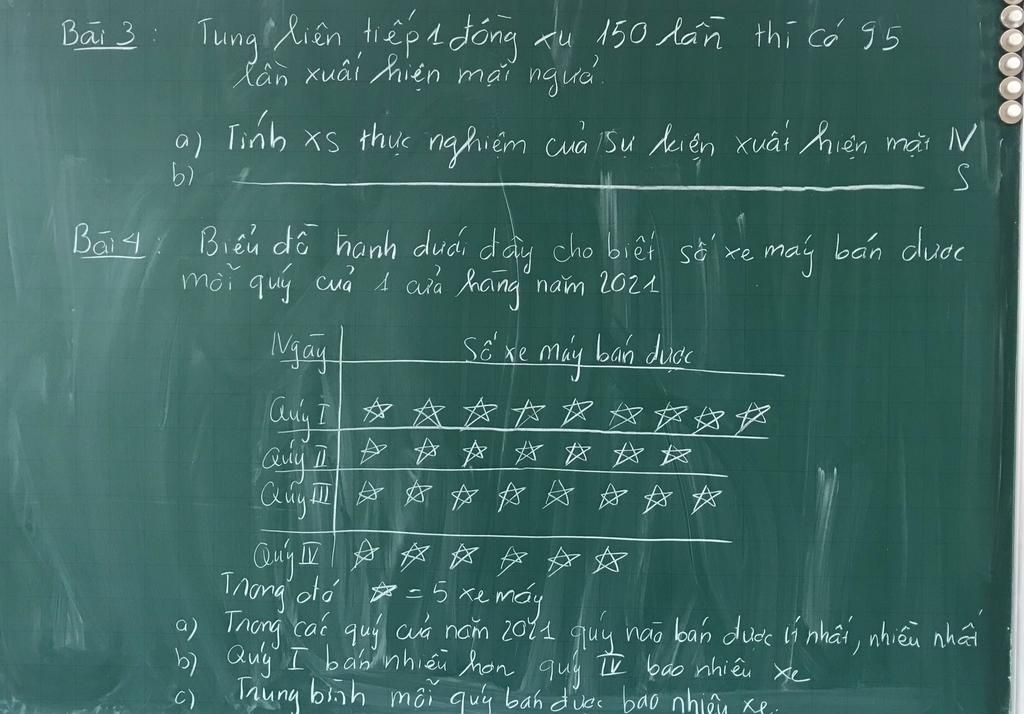 Bài 3 : Tung liên tiếp 1 đồng xu 150 lần thì có 95
lần xuất hiện mặt ngửa.
a) Tính XS thực nghiệm của sự kiện xuất hiện mặt N
b) S
Bài 4 : Biểu đồ tranh dưới đây cho biết số xe máy bán được
mỗi quý của 1 cửa hàng năm 2021
Ngày Số xe máy bán được
Quý I ☆ ☆ ☆ ☆ ☆ ☆ ☆ ☆ ☆
Quý II ☆ ☆ ☆ ☆ ☆ ☆ ☆
Quý III ☆ ☆ ☆ ☆ ☆ ☆ ☆ ☆
Quý IV ☆ ☆ ☆ ☆ ☆ ☆
Trong đó ☆ = 5 xe máy
a) Trong các quý của năm 2021 quý nào bán được ít nhất, nhiều nhất
b) Quý I bán nhiều hơn quý IV bao nhiêu xe
c) Trung bình mỗi quý bán được bao nhiêu xe.